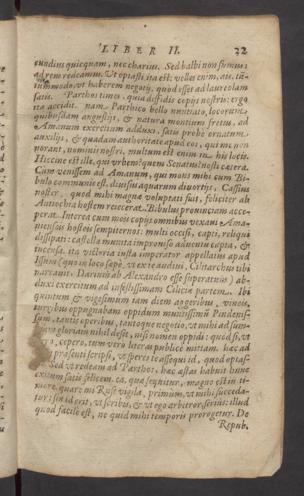 LIBER II. 32
cundius quicquam, nec charius. Sed balbi non sumus
ad rem redeamus. Ut optasti, ita est: velles enim, ais, tan-
tummodo, ut haberem negotij, quod esset ad laureolam
satis. Parthos times. quia diffidis copijs nostris: ergo
ita accidit. nam Parthico bello nuntiato, locorum
quibusdam angustijs, & natura montium fretus, ad
Amanum exercitum adduxi, satis probe ornatum
auxilijs, & quadam authoritate apud eos, qui me non
norant, nominis nostri. multum est enim in his locis.
Hiccine est ille, qui urbem? quem Senatus? nosti cetera.
Cum venissem ad Amanum, qui mons mihi cum Bi-
bulo communis est, divisus aquarum divortijs, Cassius
noster, quod mihi magnæ voluptati fuit, feliciter ab
Antiochia hostem reiecerat. Bibulus provinciam acce-
perat. Interea cum meis copijs omnibus vexavi Ama-
niensis hosteis sempiternos: multi occisi, capti, reliqui
dissipati: castella munita improviso adventu capta, &
incensa. ita victoria iusta imperator appellatus apud
Issum (quo in loco sæpe, ut ex te audivi, Clitarchus tibi
narravit Darium ab Alexandro esse superatum) ab-
duxi exercitum ad infestissimam Ciliciæ partem. Ibi
quintum & vigesimum iam diem aggeribus, vineis,
turribus oppugnabam oppidum munitissimum Pindenis-
sum, tantis operibus, tantoque negotio, ut mihi ad sum-
mam gloriam nihil desit, nisi nomen oppidi: quod si, ut
spero, cepero, tum vero litteras publice mittam. hæc ad
te in præsenti scripsi, ut speres te assequi id, quod optas-
ses. Sed ut redeam ad Parthos: hæc æstas habuit hunc
exitum satis felicem. ea, quæ sequitur, magno est in ti-
more. quare mi Rufe vigila, primum, ut mihi succeda-
tur: sin id erit, ut scribis, & ut ego arbitror, serius: illud
quod facile est, ne quid mihi temporis prorogetur. De
Repub.